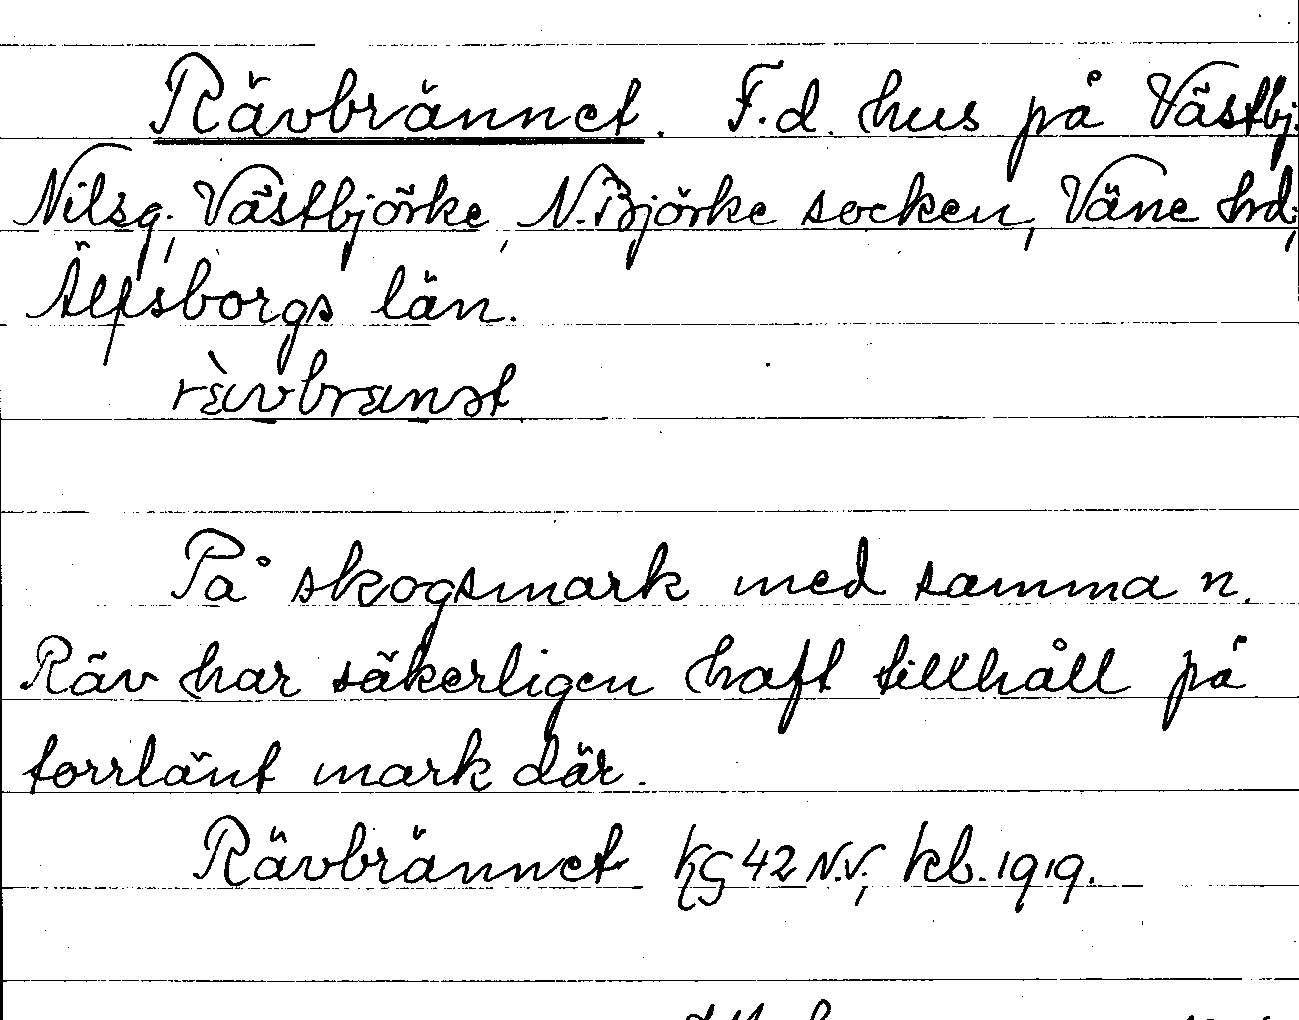 Rävbrännet. F.d. hus på Västbj.
Nilsg., Västbjörke, N. Björke socken, Väne hrd,
Älfsborgs län.
rävbrännet
På skogsmark med samma n.
Räv har säkerligen haft tillhåll på
torrlänt mark där.
Rävbrännet KG 42 N.V., kb. 1919.